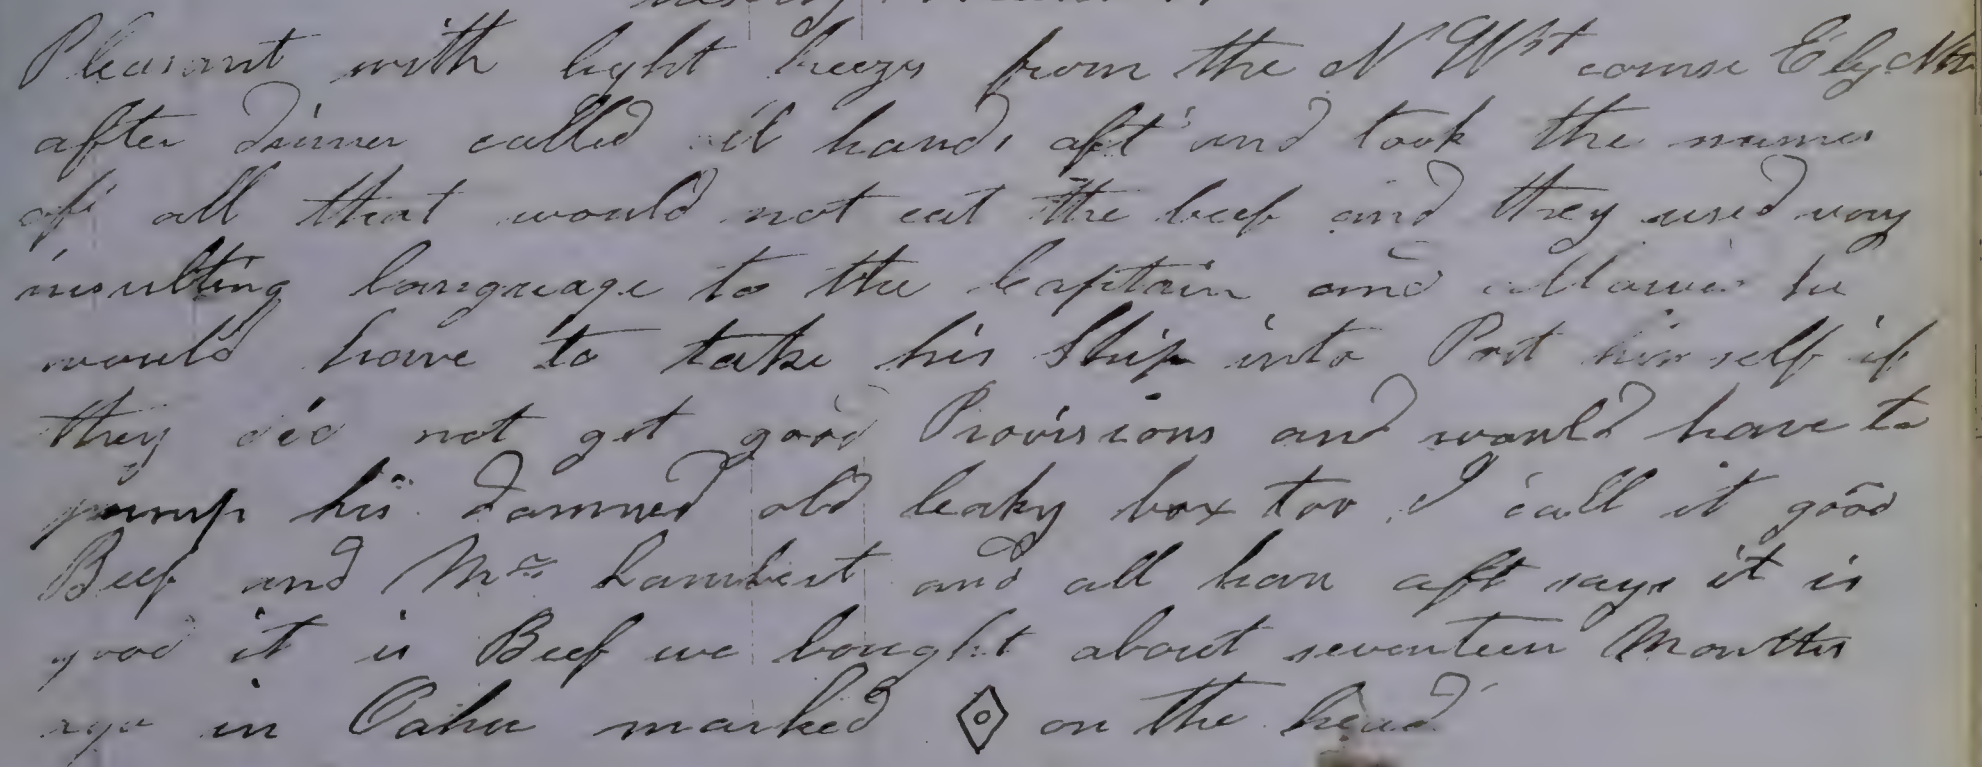 Pleasant with light breezes from the N Wst course E'ly
after dinner called all hands aft and took the names
of all that would not eat the beef and they used very
insulting language to the Captain and he
would have to take his Ship into Port himself if
they did not get good Provisions and would have to
pump his damned old leaky box too I call it good
Beef and Mr Lambert and all han aft says it is
good it is Beef we bought about seventeen Months
ago in Oahu marked on the head